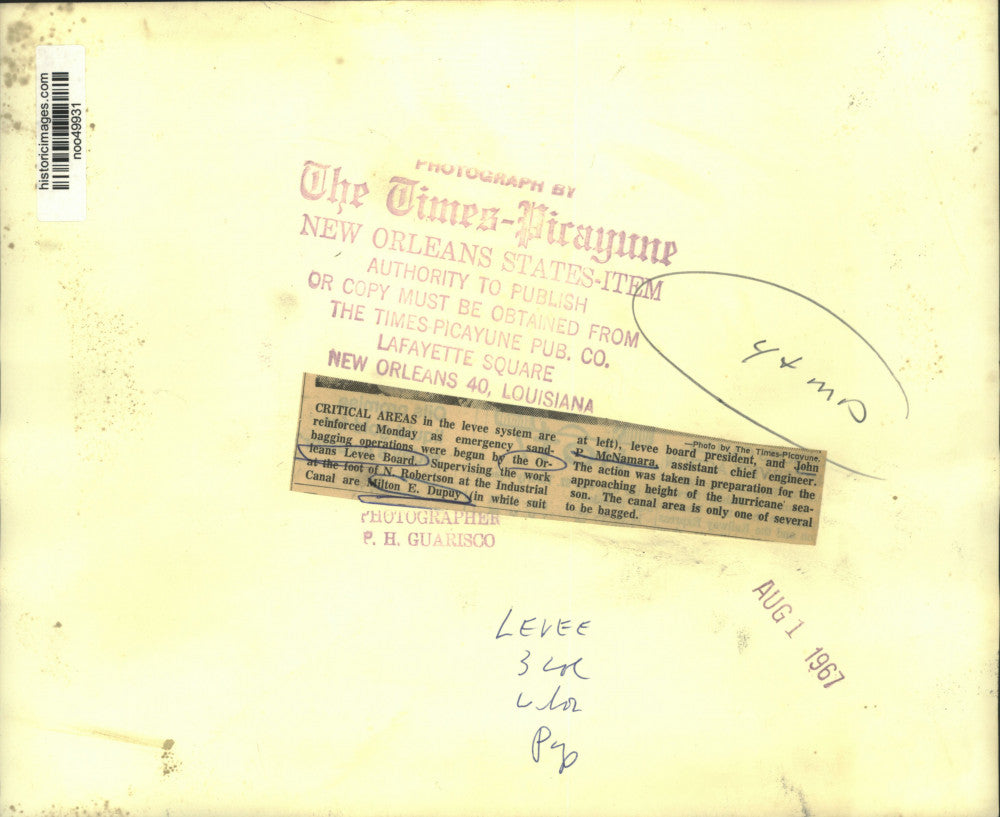 historicimages.com
noo49931
PHOTOGRAPH BY
The Times-Picayune
NEW ORLEANS STATES-ITEM
AUTHORITY TO PUBLISH
OR COPY MUST BE OBTAINED FROM
THE TIMES-PICAYUNE PUB. CO.
LAFAYETTE SQUARE
NEW ORLEANS 40, LOUISIANA
CRITICAL AREAS in the levee system are
reinforced Monday as emergency sand-
bagging operations were begun by the Or-
leans Levee Board. Supervising the work
at the foot of N. Robertson at the Industrial
Canal are Milton E. Dupuy (in white suit
—Photo by The Times-Picayune.
at left), levee board president, and John
P. McNamara, assistant chief engineer.
The action was taken in preparation for the
approaching height of the hurricane sea-
son. The canal area is only one of several
to be bagged.
PHOTOGRAPHER
P. H. GUARISCO
AUG 1 1967
LEVEE
3 col